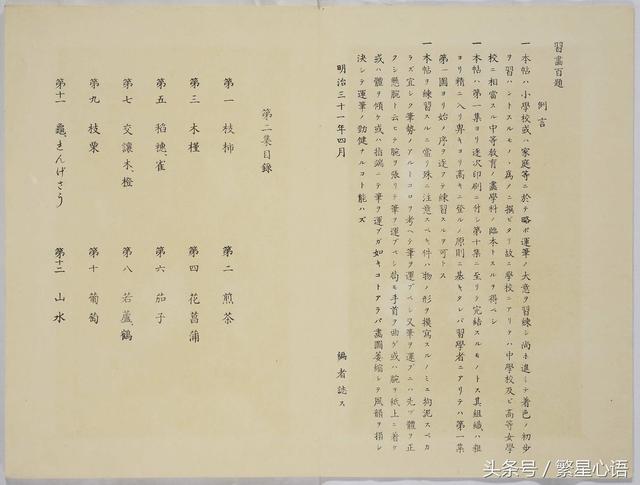 習畫百題
例言
一本帖ハ小學校或ハ家庭等ニ於テ略ボ運筆ノ大意ヲ習練シ尚ホ進ミテ着色ノ初歩
ヲ習ハントスルモノヽ爲メニ撰ビタリ故ニ學校ニアリテハ中學校及ビ高等女學
校ニ相當スル中等教育ノ畫學科ノ臨本トスルヲ得ベシ
一本帖ハ第一集ヨリ逐次印刷ニ付シ第十集ニ至リテ完結スルモノトス其組織ハ粗
ヨリ精ニ入リ卑キヨリ高キニ登ルノ原則ニ基キタレバ習學者ニアリテハ第一集
第一圖ヨリ始メ序ヲ逐フテ練習スルヲ可トス
一本帖ヲ練習スルニ當リ殊ニ注意スベキ件ハ物ノ形ヲ摸寫スルノミニ拘泥スベカ
ラズ宜シク筆勢ノアルトコロヲ考ヘテ筆ヲ運ブベシ又筆ヲ運ブニハ先ヅ體ヲ正
クシ懸腕ト云ヒテ腕ヲ張リテ筆ヲ運ブベシ苟モ手首ヲ曲ゲ或ハ腕ヲ紙上ニ着ケ
或ハ體ヲ傾ケ或ハ指端ニテ筆ヲ運ブガ如キコトアラバ畫圖萎縮シテ風韻ヲ損シ
決シテ運筆ノ勁健ナルコト能ハズ
明治三十一年四月 編者誌ス
第二集目錄
第一 枝柿 第二 煎茶
第三 木槿 第四 花菖蒲
第五 稻穗、雀 第六 茄子
第七 交讓木、橙 第八 若蘆、鶴
第九 枝栗 第十 葡萄
第十一 龜、きんげさう 第十二 山水
头条号 / 繁星心语